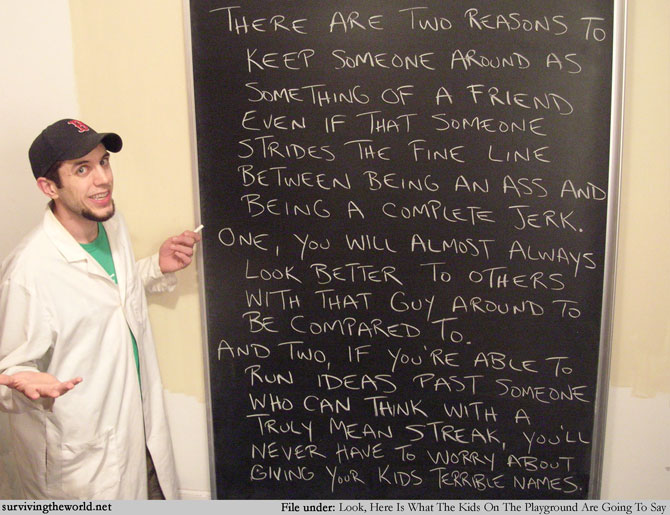 THERE ARE TWO REASONS TO
KEEP SOMEONE AROUND AS
SOMETHING OF A FRIEND
EVEN IF THAT SOMEONE
STRIDES THE FINE LINE
BETWEEN BEING AN ASS AND
BEING A COMPLETE JERK.
ONE, YOU WILL ALMOST ALWAYS
LOOK BETTER TO OTHERS
WITH THAT GUY AROUND TO
BE COMPARED TO.
AND TWO, IF YOU'RE ABLE TO
RUN IDEAS PAST SOMEONE
WHO CAN THINK WITH A
TRULY MEAN STREAK, YOU'LL
NEVER HAVE TO WORRY ABOUT
GIVING YOUR KIDS TERRIBLE NAMES.
B
survivingtheworld.net File under: Look, Here Is What The Kids On The Playground Are Going To Say